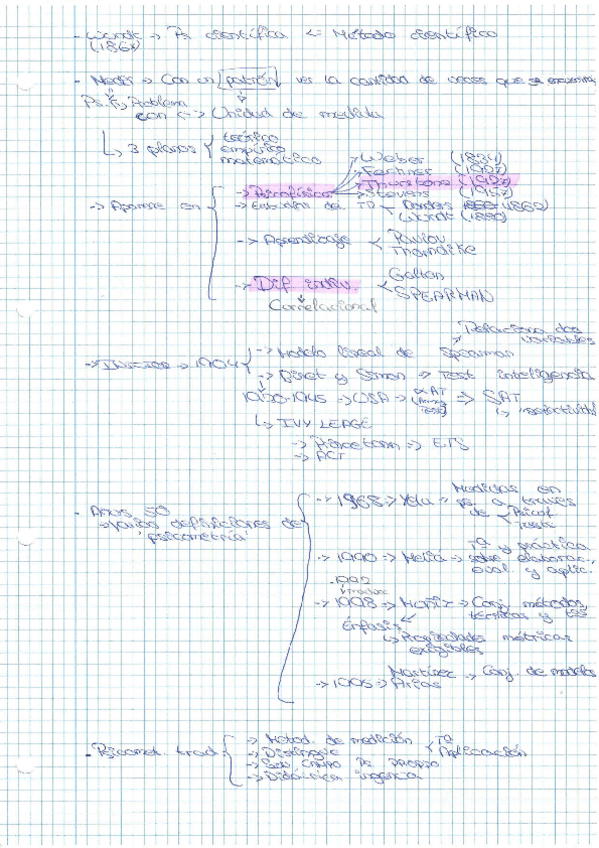 - Wundt → Ps científica <= Método científico
(1861)
- Medir → Con un patrón, ver la cantidad de veces que se encuentra
Ps. F., Problem
con <-> Unidad de medida
↳ 3 planos { teórico
empírico
matemático
→ Aparece en
→ Psicofísica
Weber (1834)
Fechner
Thurstone (1927)
Stevens (1957)
→ Estudios del TR < Donders (1862)
Wundt (1880)
→ Aprendizaje < Pavlov
Thorndike
→ Dif. indiv. < Galton
SPEARMAN
Correlacional
Relaciona dos variables
→ 1904 { → Modelo lineal de Spearman
→ Binet y Simon → Test inteligencia
→ USA → (Army Test) => SAT
↳ "selectividad
↳ IVY LEAGE
→ Princetown => ETS
→ ACT
- Años 50
→ varias definiciones de
"psicometría"
→ 1968 → Yela → Medidas en
ps a través
de < Psicof
Tests
→ 1990 → Meliá → Tª y práctica
sobre elaborac.,
eval. y aplic.
1992
→ 1998 → Muñiz → Conj. métodos,
técnicas y tªs
Énfasis
↳ Propiedades métricas
exigibles
→ 1995 → Martínez Arias → Conj. de modelos
- Psicomet. trad. { → Metod. de medición < Tª
Aplicación
→ Distingue
→ campo ps propio
→ Didáctica